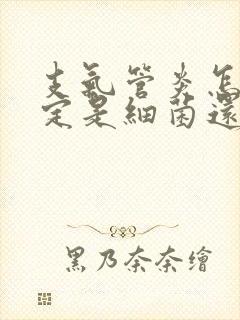 支氣管炎怎
定是細菌還
黑乃奈奈繪